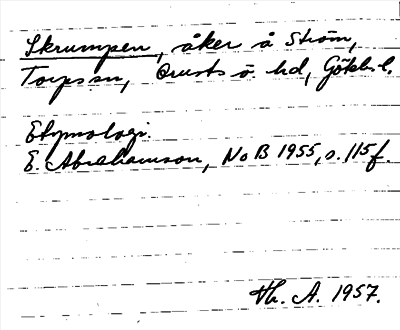 Skrumpen, åker å Ström,
Torps sn, Orusts ö. hd, Gbkbl.
Etymologi.
E. Abrahamson, NoB 1955, s. 115f.
Th. A. 1957.